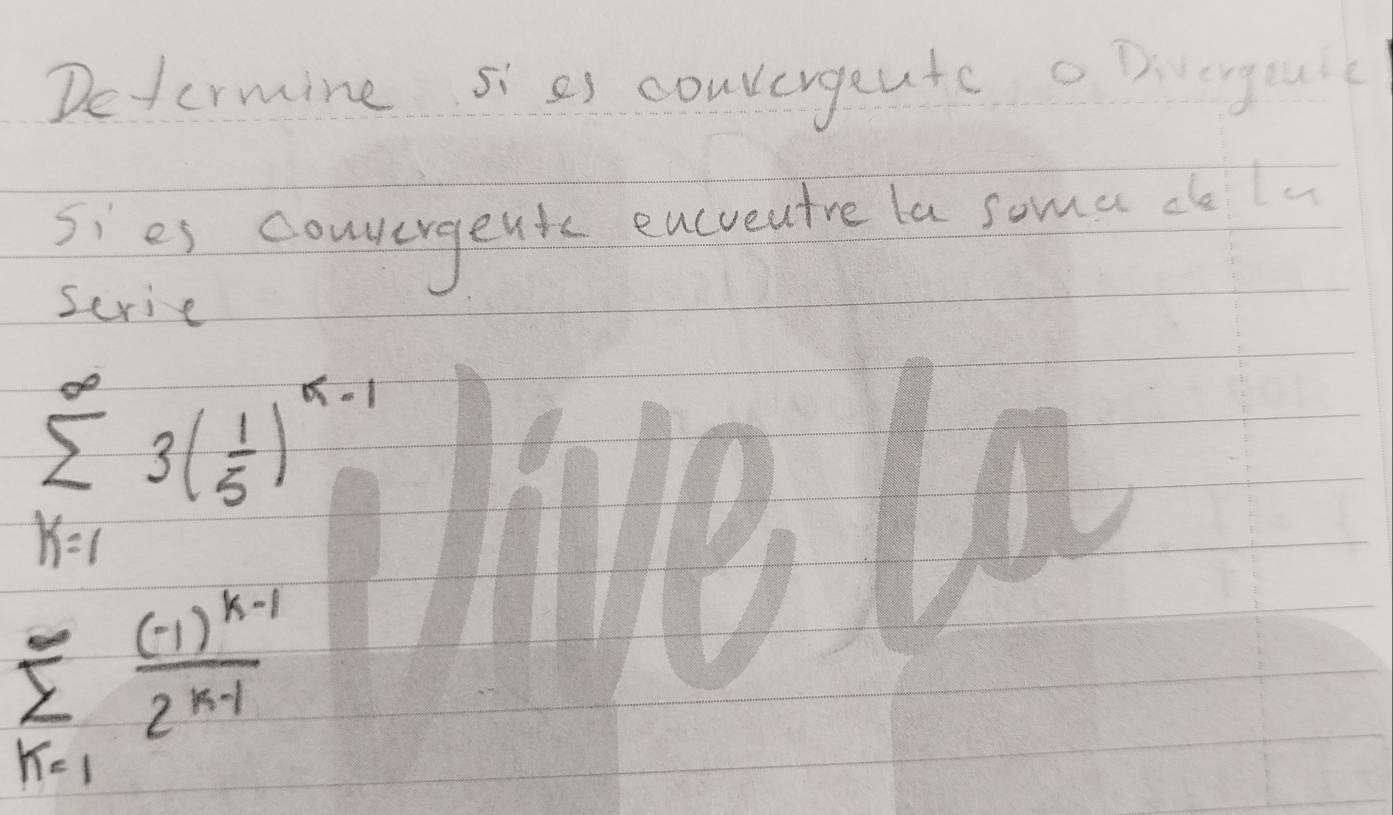 Determine si es convergente o Divergente
Si es convergente encuentre la soma de la
serie
∞
∑ 3(1/5)^K-1
K=1
∞
∑ (-1)^K-1 / 2^K-1
K=1
Vive la